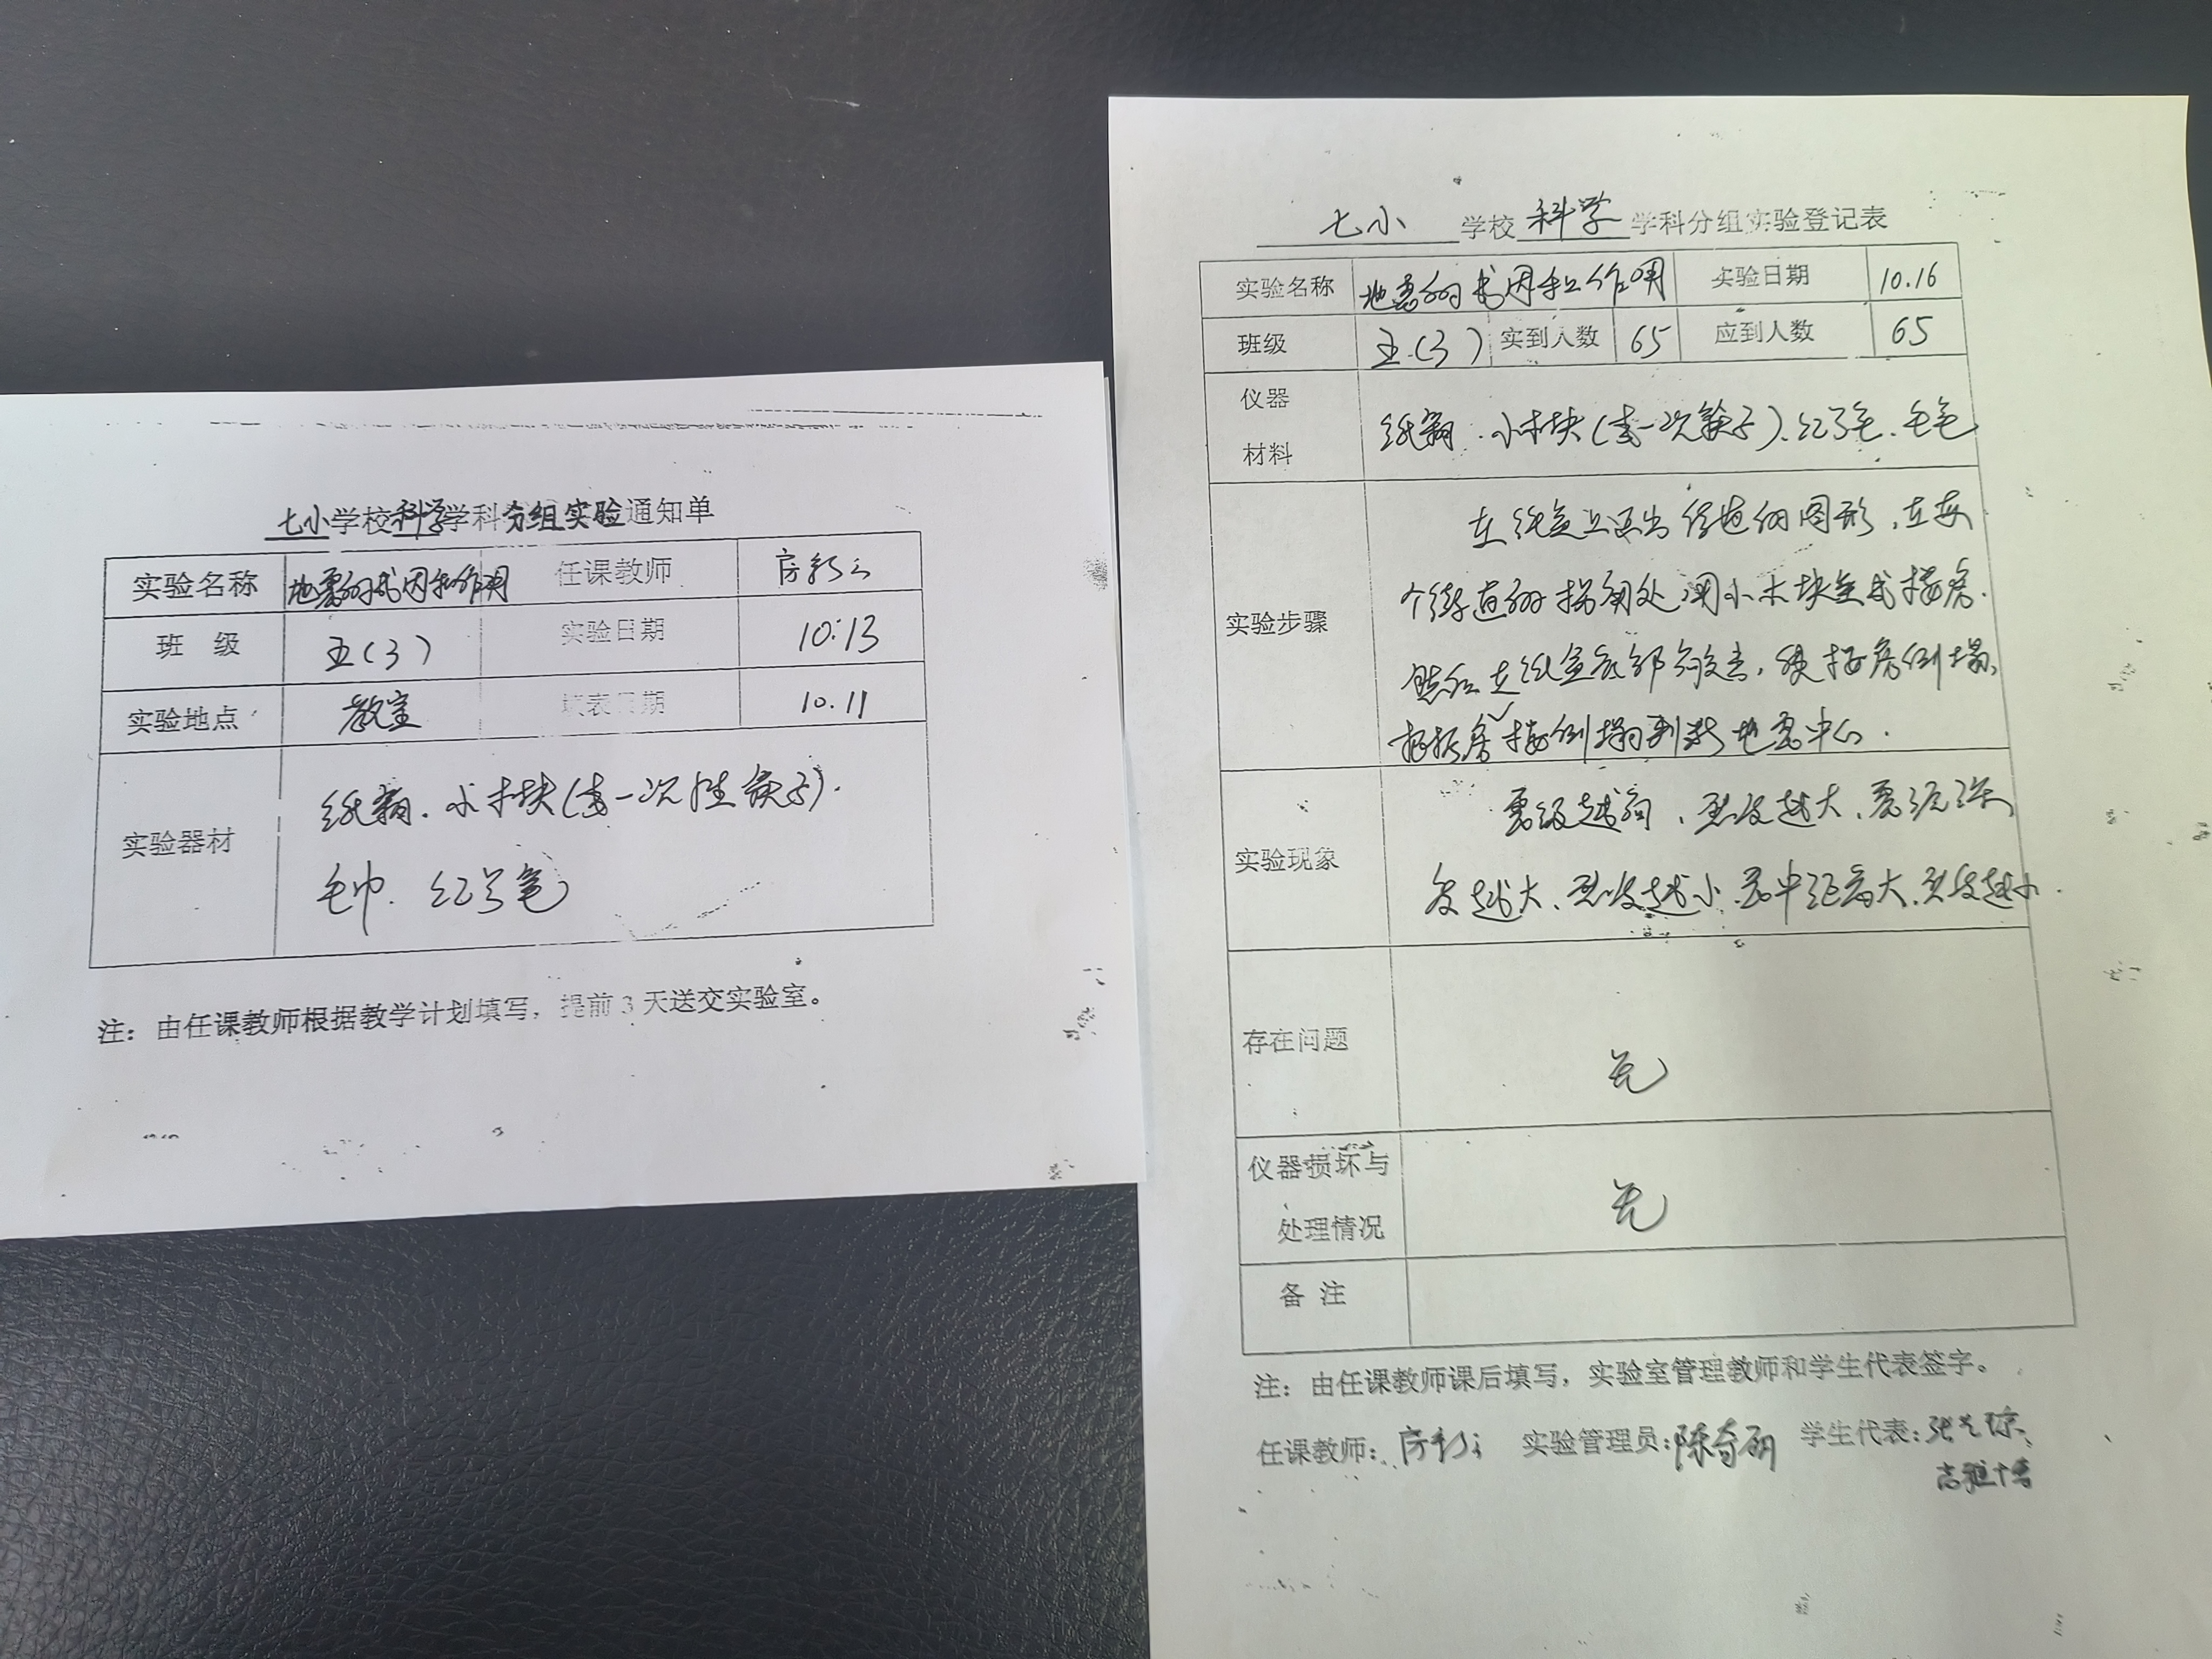 七小学校科学学科分组实验通知单
实验名称 地震的成因和作用 任课教师
班 级 五(3) 实验日期 10.13
实验地点 教室 填表日期 10.11
实验器材
纸箱.小木块(或一次性筷子).
毛巾. 记号笔
注：由任课教师根据教学计划填写，提前3天送交实验室。
七小 学校 科学 学科分组实验登记表
实验名称 地震的成因和作用 实验日期 10.16
班级 五.(3) 实到人数 65 应到人数 65
仪器
材料
纸箱.小木块(或一次筷子).记号笔.
实验步骤
在纸盒上画出街道的图形,在每
个街道的拐角处用小木块垒成楼房.
然后在纸盒底部敲击,使楼房倒塌,
根据房楼倒塌判断地震中心.
实验现象
震级越高,烈度越大,震源深
度越大,烈度越小.震中距离大,烈度越小.
存在问题
无
仪器损坏与
处理情况
无
备 注
注：由任课教师课后填写，实验室管理教师和学生代表签字。
任课教师: 实验管理员: 学生代表: